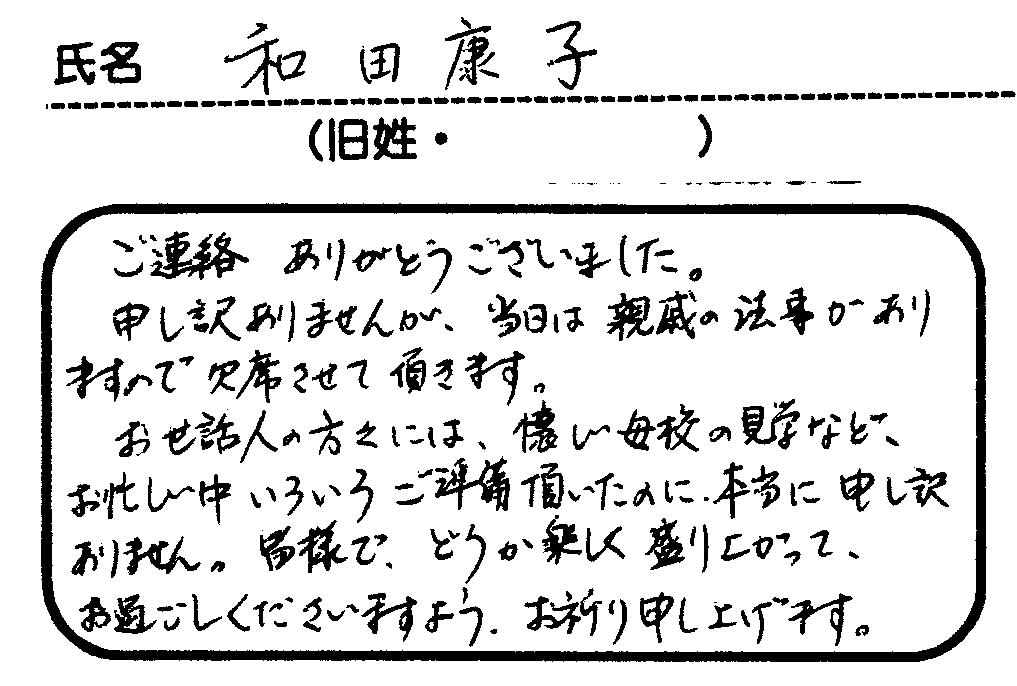 氏名 和田康子
(旧姓・ )
ご連絡 ありがとうございました。
申し訳ありませんが、当日は親戚の法事があり
ますので欠席させて頂きます。
お世話人の方々には、懐しい母校の見学など、
お忙しい中いろいろご準備頂いたのに、本当に申し訳
ありません。皆様で、どうか楽しく盛り上がって、
お過ごしくださいますよう、お祈り申し上げます。